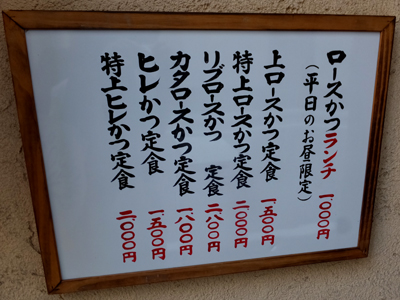 ロースかつランチ 一、〇〇〇円
(平日のお昼限定)
上ロースかつ定食 一、五〇〇円
特上ロースかつ定食 二、〇〇〇円
リブロースかつ 定食 二、八〇〇円
カタロースかつ定食 一、八〇〇円
ヒレかつ定食 一、五〇〇円
特上ヒレかつ定食 二、〇〇〇円